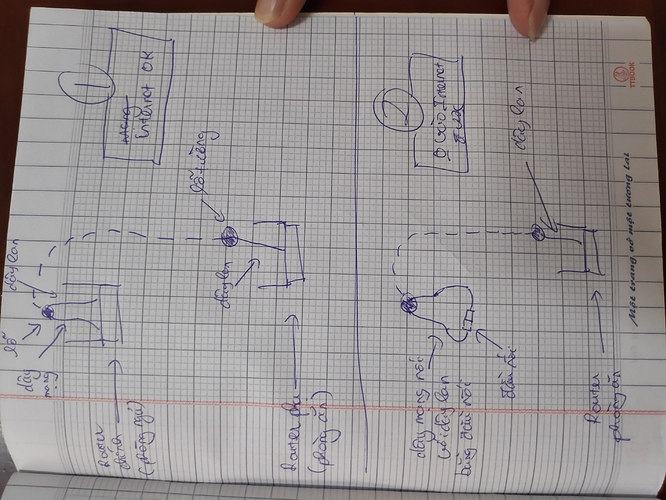 1
mạng
internet OK
lỗ tường
dây lan
lỗ
dây lan
dây
mạng
Router
chính
(phòng ngủ)
Router phụ
(phòng ăn)
2
Ko vào Internet
dây lan
dây mạng nối
với dây lan
bằng đầu nối
đầu nối
Router
phòng ăn
TTBOOK
Một trang vở một tương lai